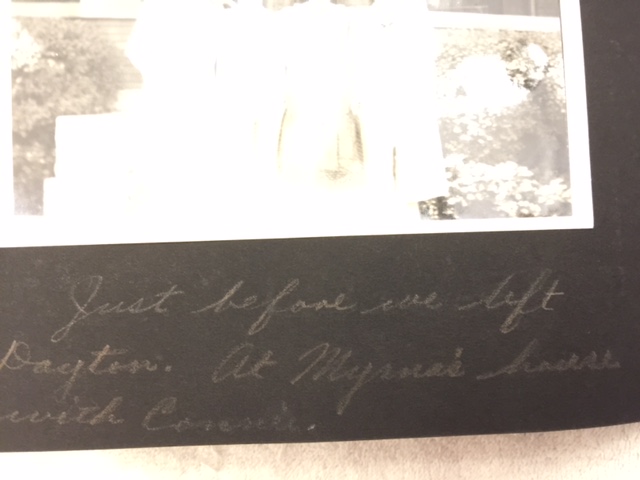 Just before we left
Dayton. At Myrna's house
with Connie.